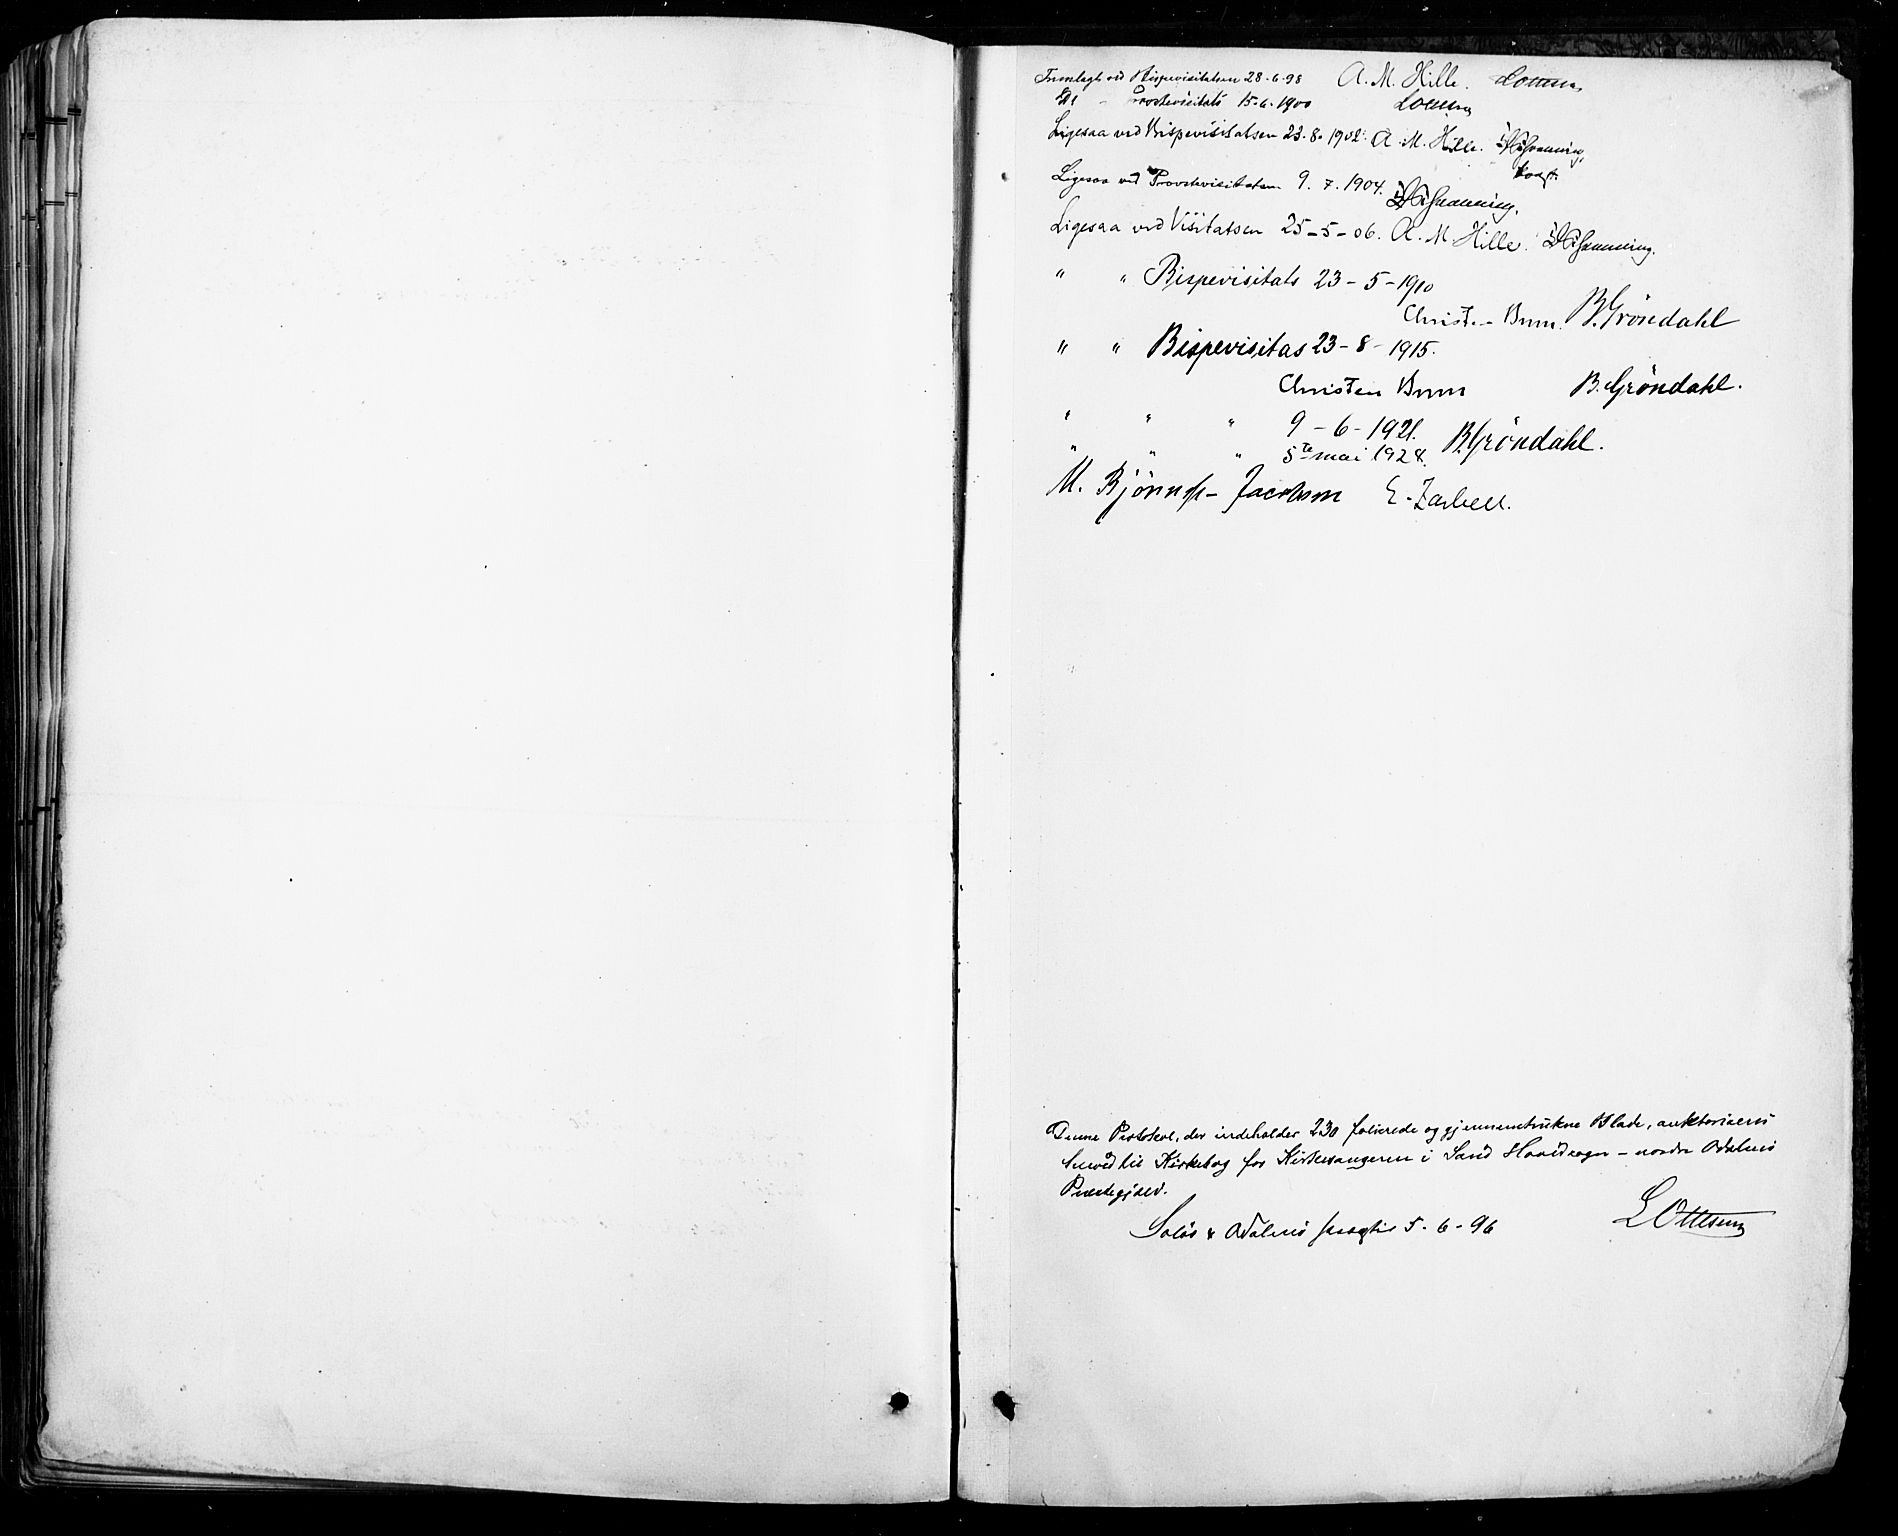 Fremlagt ved Bispevisitatsen 28-6-98 A. M. Hille.
Provstevisitats 15-6-1900
Ligesaa ved Bispevisitatsen 23-8-1902. A. M. Hille.
Ligesaa ved Provstevisitatsen 9. 7. 1904.
Ligesaa ved Visitatsen 25-5-06. A. M. Hille.
" " Bispevisitats 23-5-1910
Christen Brun. B. Gröndahl
" " Bispevisitas 23-8-1915.
Christen Brun B. Gröndahl.
" " " 9-6-1921. B. Gröndahl.
" " " 5te mai 1928.
M. Bjönness-Jacobsen E.
Denne Protokol, der indeholder 230 folierede og gjennemtrukne Blade, auktoriseres
herved til Kirkebog for Kirkesangeren i Sand Hovedsogn - nordre Odalens
Præstegjeld.
Solør & Odalens 5-6-96 L Ottesen